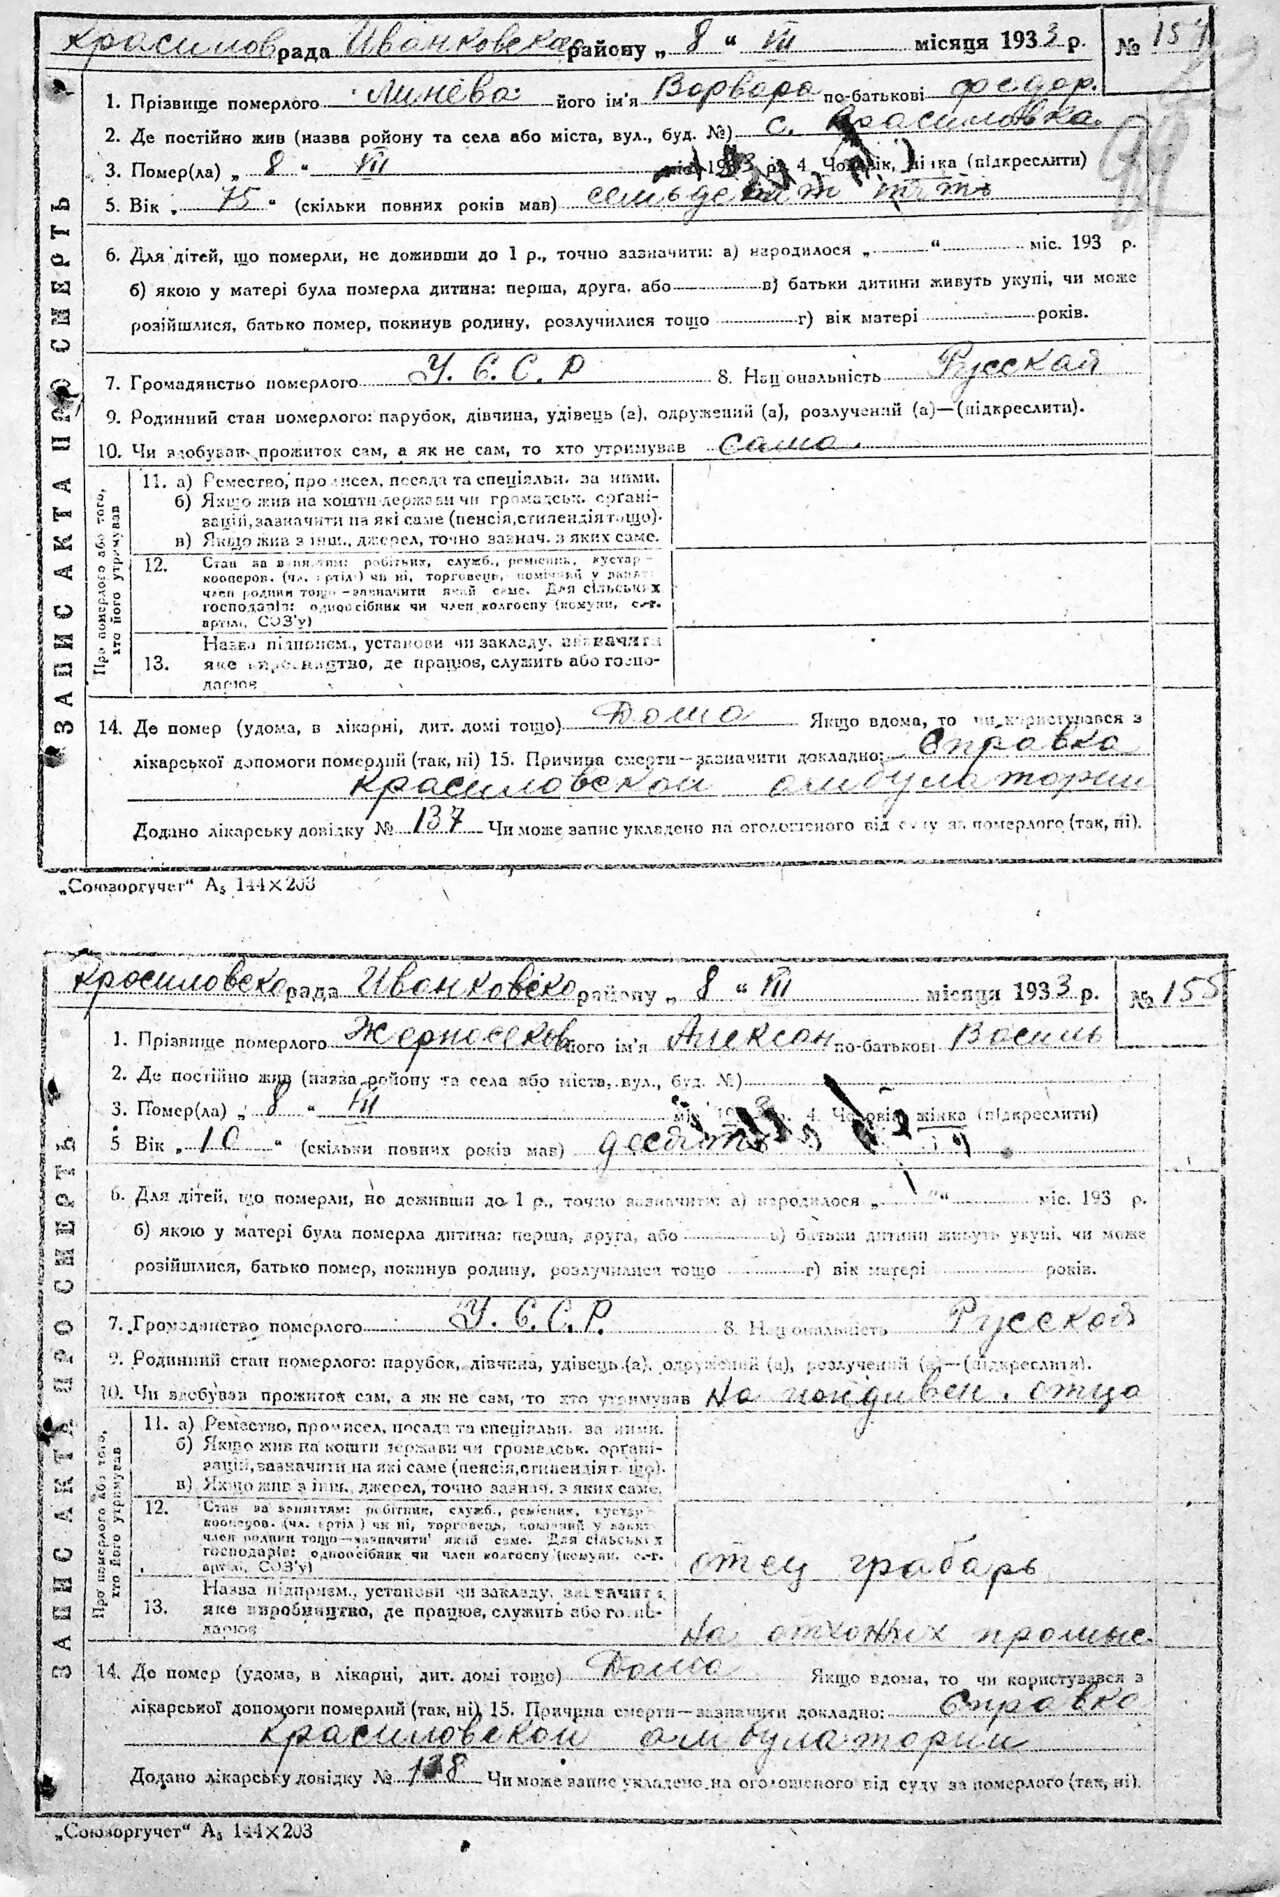 Красилов рада Иванковская району „ 8 “ VII місяця 1933 р. № 154
1. Прізвище померлого Линева його ім'я Варвара по-батькові Федор.
2. Де постійно жив (назва району та села або міста, вул., буд. №) с. Красиловка
3. Помер(ла) „ 8 “ VII 4. (підкреслити)
5. Вік „ 75 “ (скільки повних років мав) семьдесят пять
6. Для дітей, що померли, не доживши до 1 р., точно зазначити: а) народилося „ “ міс. 193 р.
б) якою у матері була померла дитина: перша, друга, або в) батьки дитини живуть укупі, чи може
розійшлися, батько помер, покинув родину, розлучилися тощо г) вік матері років.
7. Громадянство померлого У.С.С.Р 8. Національність Русской
9. Родинний стан померлого: парубок, дівчина, удівець (а), одружений (а), розлучений (а)—(підкреслити).
10. Чи здобував прожиток сам, а як не сам, то хто утримував сама.
11. а) Ремество, промисел, посада та спеціяльн. за ними.
б) Якщо жив на кошти держави чи громадськ. органі-
зацій, зазначити на які саме (пенсія, стипендія тощо).
в) Якщо жив з інш. джерел, точно зазнач. з яких саме.
12. Стан за заняттям: робітник, служб., ремісник, кустар-
кооперов. (чл. артілі) чи ні, торговець, помічний у занят.
член родини тощо—зазначити який саме. Для сільських
господарів: одноосібник чи член колгоспу (комуни, с.-г.
артілі, СОЗ'у)
13. Назва підприєм., установи чи закладу, зазначити
яке виробництво, де працює, служить або госпо-
дарює
14. Де помер (удома, в лікарні, дит. домі тощо) Дома Якщо вдома, то чи користувався з
лікарської допомоги померлий (так, ні) 15. Причина смерти—зазначити докладно: Справка
Красиловской амбулатории
Додано лікарську довідку № 137 Чи може запис укладено на оголошеного від суду за померлого (так, ні).
ЗАПИС АКТА ПРО СМЕРТЬ
Про померлого або того,
хто його утримував
„Союзоргучет“ А5 144×203
Красиловска рада Иванковско району „ 8 “ VII місяця 1933 р. № 155
1. Прізвище померлого Жерносеков його ім'я Алексан по-батькові Василь
2. Де постійно жив (назва району та села або міста, вул., буд. №)
3. Помер(ла) „ 8 “ VII 4. Чоловік, жінка (підкреслити)
5 Вік „ 10 “ (скільки повних років мав) десять
6. Для дітей, що померли, не доживши до 1 р., точно зазначити: а) народилося „ “ міс. 193 р.
б) якою у матері була померла дитина: перша, друга, або в) батьки дитини живуть укупі, чи може
розійшлися, батько помер, покинув родину, розлучилися тощо г) вік матері років.
7. Громадянство померлого У.С.С.Р. 8. Національність Русской
9. Родинний стан померлого: парубок, дівчина, удівець (а), одружений (а), розлучений (а)—(підкреслити).
10. Чи здобував прожиток сам, а як не сам, то хто утримував На иждивен. отца
11. а) Ремество, промисел, посада та спеціяльн. за ними.
б) Якщо жив на кошти держави чи громадськ. органі-
зацій, зазначити на які саме (пенсія, стипендія тощо).
в) Якщо жив з інш. джерел, точно зазнач. з яких саме.
12. Стан за заняттям: робітник, служб., ремісник, кустар-
кооперов. (чл. артілі) чи ні, торговець, помічний у занят.
член родини тощо—зазначити який саме. Для сільських
господарів: одноосібник чи член колгоспу (комуни, с.-г.
артілі, СОЗ'у) отец грабарь
13. Назва підприєм., установи чи закладу, зазначити
яке виробництво, де працює, служить або госпо-
дарює на отхожих промыс.
14. Де помер (удома, в лікарні, дит. домі тощо) Дома Якщо вдома, то чи користувався з
лікарської допомоги померлий (так, ні) 15. Причина смерти—зазначити докладно: Справка
Красиловской амбулатории
Додано лікарську довідку № 138 Чи може запис укладено на оголошеного від суду за померлого (так, ні).
ЗАПИС АКТА ПРО СМЕРТЬ
Про померлого або того,
хто його утримував
„Союзоргучет“ А5 144×203